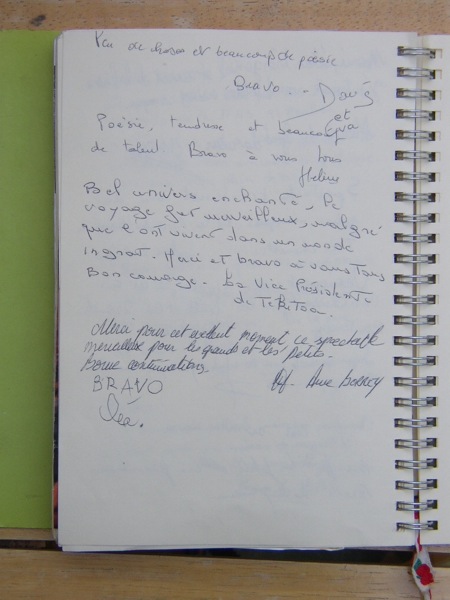 Peu de choses et beaucoup de poésie
Bravo...
et
Poésie, tendresse et beaucoup
de talent. Bravo à vous tous
Hélène
Bel univers enchanté, le
voyage fut merveilleux, malgré
que l'ont vivent dans un monde
ingrat. Merci et bravo à vous tous
Bon courage. La Vice Présidente
de
Merci pour cet excellent moment, ce spectacle
merveilleux pour les grands et les petits.
Bonne continuation.
BRAVO
Léa.